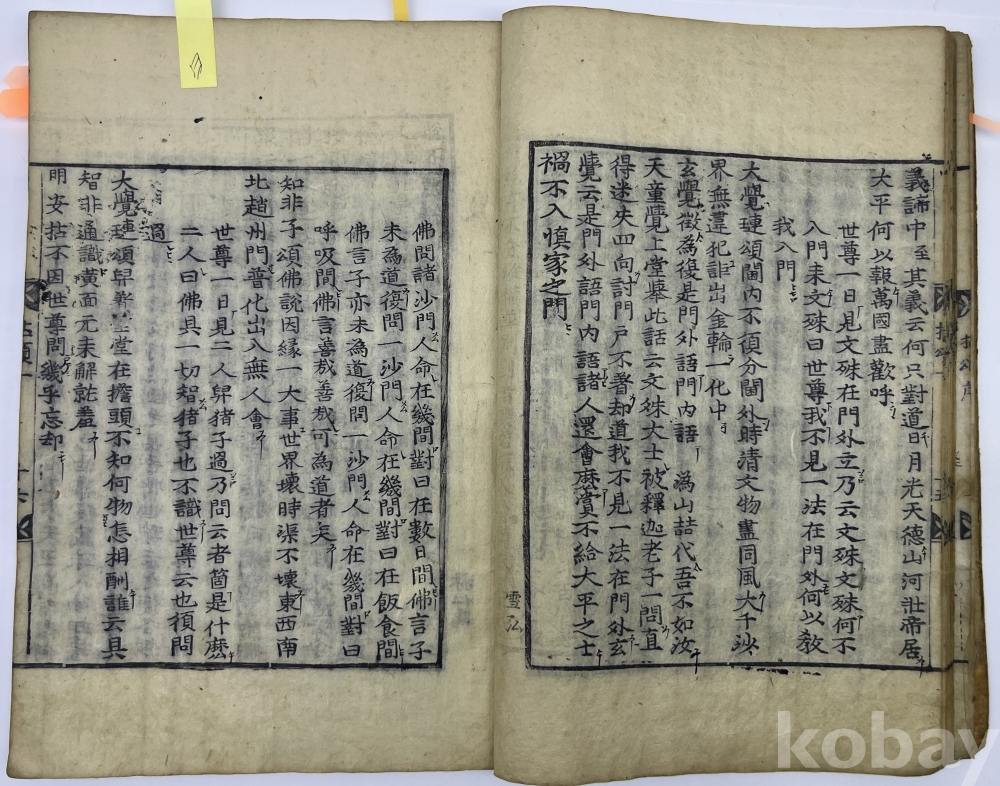 義諦中至其義云何只對道日月光天德山河壯帝居
大平何以報萬國盡歡呼
世尊一日見文殊在門外立乃云文殊文殊何不
入門来文殊曰世尊我不見一法在門外何以教
我入門
大覺璉頌閫內不須分閫外時清文物盡同風大千沙
界無違犯詎出金輪一化中
玄覺徵為復是門外語門內語 溈山喆代吾不如汝
天童覺上堂擧此話云文殊大士被釋迦老子一問直
得迷失四向討門戶不著却道我不見一法在門外玄
覺云是門外語門內語諸人還會麽賞不給大平之士
禍不入慎家之門
佛問諸沙門人命在幾間對曰在數日間佛言子
未為道復問一沙門人命在幾間對曰在飯食間
佛言子亦未為道復問一沙門人命在幾間對曰
呼吸間佛言善哉善哉可為道者矣
知非子頌佛說因緣一大事世界壞時渠不壞東西南
北趙州門普化出入無人會
世尊一日見二人舁猪子過乃問云者箇是什麽
二人曰佛具一切智猪子也不識世尊云也須問
過
大覺璉頌舁 堂堂在擔頭不知何物怎相酬誰云具
智非通識黃面元来解就羞
明安拈不因世尊問幾乎忘却
雪弘
kobay